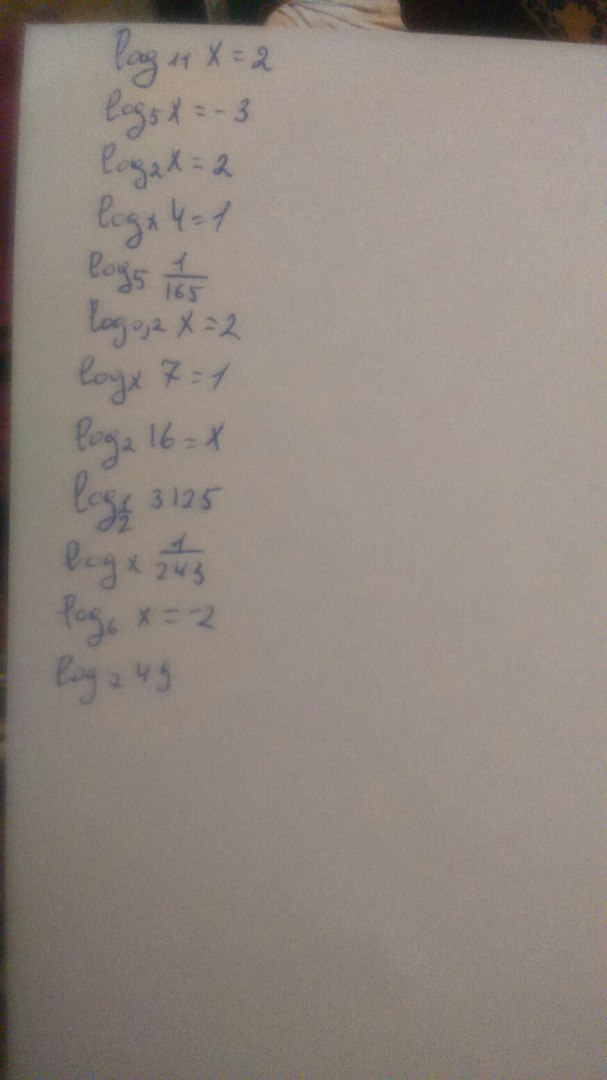 log₁₁ x = 2
log₅ x = -3
log₂ x = 2
logₓ 4 = 1
log₅ 1/165
log₀,₂ x = 2
logₓ 7 = 1
log₂ 16 = x
log_1/2 3125
logₓ 1/243
log₆ x = -2
log₇ 49